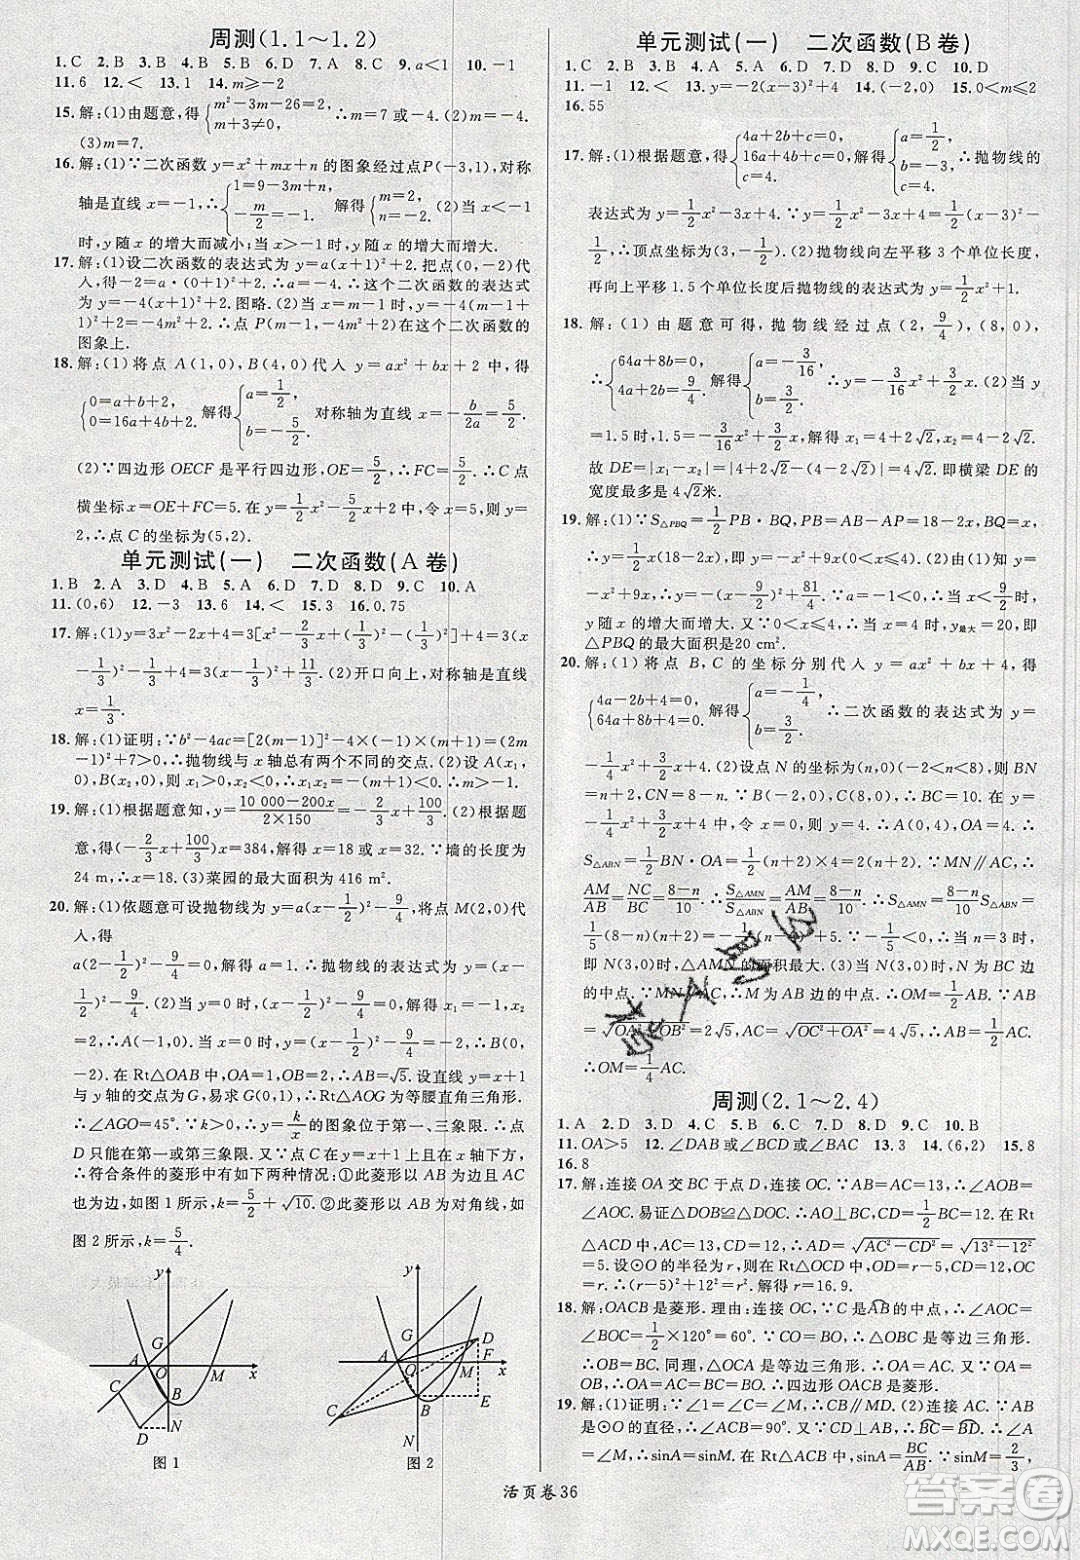 周测(1.1～1.2)
1.C 2.B 3.C 4.B 5.B 6.D 7.A 8.C 9.a＜1 10.－1
11.6 12.＜ 13.1 14.m≥－2
15.解:(1)由题意,得{m²－3m－26＝2, m＋3≠0, 解得 m＝－4. (2)m＝－4.
(3)m＝7.
16.解:(1)∵二次函数 y＝x²＋mx＋n 的图象经过点P(－3,1),对称
轴是直线 x＝－1,∴{1＝9－3m＋n, －m/2＝－1. 解得{m＝2, n＝－2. (2)当 x＜－1
时,y 随 x 的增大而减小;当 x＞－1 时,y 随 x 的增大而增大.
17.解:(1)设二次函数的表达式为 y＝a(x＋1)²＋2. 把点(0,－2)代
入,得－2＝a·(0＋1)²＋2.∴a＝－4.∴这个二次函数的表达式
为 y＝－4(x＋1)²＋2. 图略. (2)当 x＝1 时,y＝－4×(1＋
1)²＋2＝－14.∴点 P(1,－14)在这个二次函数的
图象上.
18.解:(1)将点 A(1,0),B(4,0)代入 y＝ax²＋bx＋2 中,得
{0＝a＋b＋2, 0＝16a＋4b＋2. 解得{a＝1/2, b＝－5/2. 对称轴为直线 x＝－b/2a＝5/2.
(2)∵四边形 OECF 是平行四边形,OE＝5/2,∴FC＝5/2.∴C 点
横坐标 x＝OE＋FC＝5. 在 y＝1/2x²－5/2x＋2 中,令 x＝5,则 y＝
2,∴点 C 的坐标为(5,2).
单元测试(一) 二次函数(A卷)
1.B 2.A 3.D 4.B 5.A 6.D 7.D 8.D 9.C 10.A
11.(0,6) 12.－3 13.6 14.＜ 15.3 16.0.75
17.解:(1)y＝3x²－2x＋4＝3[x²－2/3x＋(1/3)²－(1/3)²]＋4＝3(x－
1/3)²－1/3＋4＝3(x－1/3)²＋11/3. (2)开口向上,对称轴是直线
x＝1/3.
18.解:(1)证明:∵b²－4ac＝[2(m－1)]²－4×(－1)×(m＋1)＝(2m
－1)²＋7＞0,∴抛物线与 x 轴总有两个不同的交点. (2)设 A(x₁,
0),B(x₂,0),则 x₁＞0,x₂＜0.∵x₁x₂＝－(m＋1)＜0,∴m＞－1.
19.解:(1)根据题意知,y＝(10 000－200x)/(2×150)＝－2/3x＋100/3. (2)根据题
意,得(－2/3x＋100/3)x＝384,解得 x＝18 或 x＝32.∵墙的长度为
24 m,∴x＝18. (3)菜园的最大面积为 416 m².
20.解:(1)依题意可设抛物线为 y＝a(x－1/2)²－9/4,将点 M(2,0)代
入,得
a(2－1/2)²－9/4＝0,解得 a＝1.∴抛物线的表达式为 y＝(x－
1/2)²－9/4. (2)当 y＝0 时,(x－1/2)²－9/4＝0,解得 x₁＝－1,x₂
＝2,∴A(－1,0). 当 x＝0 时,y＝(0－1/2)²－9/4＝－2,∴B(0,
－2). 在 Rt△OAB 中,OA＝1,OB＝2,∴AB＝√5. 设直线 y＝x＋1
与 y 轴的交点为 G(0,1),∴Rt△AOG 为等腰直角三角形.
∴∠AGO＝45°.∵k＞0,∴y＝k/x 的图象位于第一、三象限.∴点
D 只能在第一、三象限.又∵点 C 在直线 y＝x＋1 上,
∴符合条件的菱形有如下两种情况:①此菱形以 AB 为边且 AC
也为边,如图 1 所示,k＝5/2＋√10. ②此菱形以 AB 为对角线,如
图 2 所示,k＝5/4.
y G A O M x C B D N
图 1
y G A O D F M x C B E N
图 2
单元测试(一) 二次函数(B卷)
1.C 2.B 3.C 4.A 5.D 6.A 7.B 8.C 9.C 10.D
11.－1 12.＜ 13.y＝－2(x－3)²＋1 14.(－2,0) 15.0＜m≤2
16.55
17.解:(1)根据题意,得{4a＋2b＋c＝0, 16a＋4b＋c＝0, c＝4. 解得{a＝1/2, b＝－3, c＝4. ∴抛物线的
表达式为 y＝1/2x²－3x＋4.∵y＝1/2x²－3x＋4＝1/2(x－3)²
－1/2,∴顶点坐标为(3,－1/2). (2)抛物线向左平移 3 个单位长度,
再向上平移 1.5 个单位长度后抛物线的表达式为 y＝1/2x²＋1.
18.解:(1)由题意可得,抛物线经过点(2,9/4),(8,0),
∴{64a＋8b＝0, 4a＋2b＝9/4. 解得{a＝－3/16, b＝3/2. ∴y＝－3/16x²＋3/2x. (2)当 y
＝1.5 时,1.5＝－3/16x²＋3/2x,解得 x₁＝4＋2√2,x₂＝4－2√2.
故 DE＝|x₁－x₂|＝|4＋2√2－(4－2√2)|＝4√2. 即横梁 DE 的
宽度最多是 4√2米.
19.解:(1)∵S△PBQ＝1/2PB·BQ,PB＝AB－AP＝18－2x,BQ＝x,
∴y＝1/2(18－2x)x＝－x²＋9x(0＜x≤4). (2)由(1)知 y＝
－x²＋9x,∴y＝－(x－9/2)²＋81/4.∵a＝－1＜0,当 x＜9/2时,
y 随 x 的增大而增大. 又∵0＜x≤4,∴当 x＝4 时,y最大＝20,即
△PBQ 的最大面积是20 cm².
20.解:(1)将点 B,C 的坐标分别代入 y＝ax²＋bx＋4,得
{4a－2b＋4＝0, 64a＋8b＋4＝0. 解得{a＝－1/4, b＝3/2. ∴二次函数的表达式为 y＝
－1/4x²＋3/2x＋4. (2)设点 N 的坐标为(n,0)(－2＜n＜8),则 BN
＝n＋2,CN＝8－n.∵B(－2,0),C(8,0),∴BC＝10. 在 y＝
－1/4x²＋3/2x＋4 中,令 x＝0,得 y＝4.∴A(0,4),OA＝4.∴
S△ABN＝1/2BN·OA＝1/2(n＋2)×4＝2(n＋2).∵MN∥AC,∴
AM/AB＝NC/BC＝(8－n)/10.∴S△AMN/S△ABN＝AM/AB＝(8－n)/10.∴S△AMN＝
1/5(8－n)(n＋2)＝－1/5(n－3)²＋5.∵－1/5＜0,∴当 n＝3 时,
即 N(3,0)时,△AMN 的面积最大. (3)当 N(3,0)时,N 为 BC 边
的中点.∵MN∥AC,∴M 为 AB 边的中点.∴OM＝1/2AB.∵AB
＝√(OA²＋OB²)＝2√5,AC＝√(OC²＋OA²)＝4√5,∴AB＝1/2AC.
∴OM＝1/4AC.
周测(2.1～2.4)
1.A 2.D 3.D 4.C 5.C 6.D 7.B 8.D 9.C 10.C
11.OA＞5 12.∠DAB或∠BCD或∠BAC 13.3 14.(6,2) 15.8
16.8
17.解:连接 OA 交 BC 于点 D,连接 OC.∵AB＝AC＝13,∴∠AOB＝
∠AOC. 易证△DOB≌△DOC.∴AO⊥BC,CD＝1/2BC＝12. 在 Rt
△ACD 中,AC＝13,CD＝12.∴AD＝√(AC²－CD²)＝√(13²－12²)
＝5. 设⊙O 的半径为 r,则在 Rt△OCD 中,OD＝r－5,CD＝12,
OC＝r.∴(r－5)²＋12²＝r². 解得 r＝16.9.
18.解:OACB 是菱形. 理由:连接 OC.∵C 是AB的中点,∴∠AOC＝
∠BOC＝1/2×120°＝60°.∵CO＝BO,∴△OBC 是等边三角形.
∴OB＝BC. 同理,△OCA 是等边三角形.∴OA＝AC. 又∵OA＝
OB,∴OA＝AC＝BC＝OB.∴四边形 OACB 是菱形.
19.解:(1)证明:∵∠1＝∠C,∴CB∥MD. (2)连接 AC.∵AB
是⊙O 的直径,∴∠ACB＝90°. 又∵CD⊥AB,∴BC＝BD.∴∠A
＝∠M,∴sinA＝sinM. 在 Rt△ACB 中,∵sinA＝BC/AB.∵sinM＝
活页卷36
答案圈
MXQE.COM